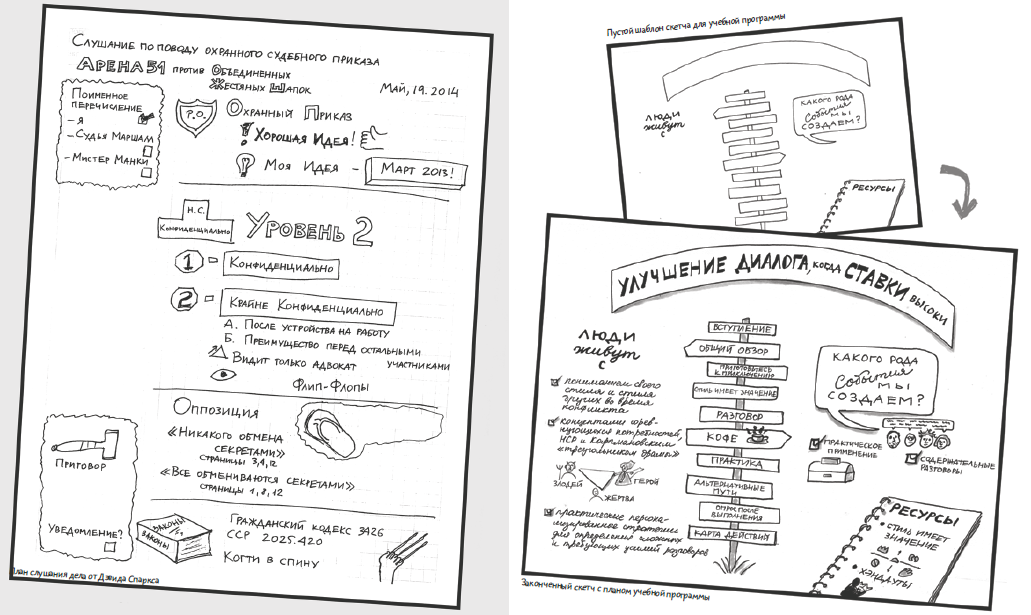 Слушание по поводу охранного судебного приказа
Арена 51 против Объединенных
Жестяных Шапок
Май, 19. 2014
Поименное
перечисление
- Я
- Судья Маршам
- Мистер Манки
P.O.
Охранный Приказ
! Хорошая Идея!
Моя Идея - Март 2013!
Н.С.
Конфиденциально
Уровень 2
1 - Конфиденциально
2 - Крайне Конфиденциально
А. После устройства на работу
Б. Преимущество перед остальными
участниками
Видит только адвокат
Флип-Флопы
Оппозиция
«Никакого обмена
секретами»
страницы 3,4,12
«Все обмениваются секретами»
страницы 1, 8, 12
Приговор
Уведомление?
Законы
Законы
Гражданский кодекс 3426
ССР 2025.420
Когти в спину
План слушания дела от Дэвида Спаркса
Пустой шаблон скетча для учебной программы
Люди
живут
с
Какого рода
События
мы
создаем?
Ресурсы
Улучшение диалога, когда ставки высоки
Люди
живут
с
пониманием своего
стиля и стиля
других во время
конфликта
потребностей,
НСР и Карпмановским
«треугольником драмы»
Злодей
Герой
Жертва
для определения сложных
и требующих усилий разговоров
Вступление
Общий обзор
Приготовьтесь
к приключению
Стиль имеет значение
Разговор
Кофе
Практика
Альтернативные
пути
Опрос после
выполнения
Карта действия
Какого рода
События
мы
создаем?
Практическое
применение
Содержательные
разговоры
Ресурсы
• Стиль имеет
значение
• Хэндауты
Законченный скетч с планом учебной программы